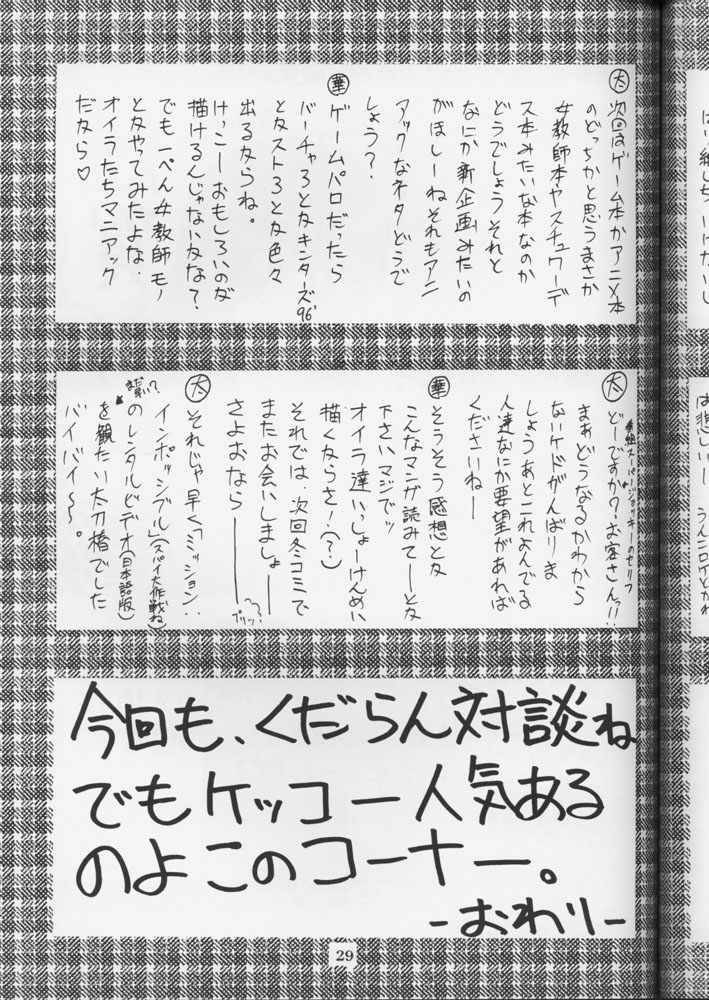 太
次回はゲーム本かアニメ本
のどっちかと思うまさか
女教師本ヤスチュワーデ
ス本みたいな本なのか
どうでしょうそれと
なにか新企画みたいの
がほしーねそれもアニ
アックなネタどうで
しょう?
華
ゲームパロだったら
バーチャろとかキンターズ96'
とかストろとか色々
出るならね。
けっこーおもしろいのが
描けるんじゃないかな?
でも一ぺん女教師モノ
とかやてみたよな.
オイラたちマニアック
だなら♡
太
どーですかァお客さん!!
まぁどうなるかわから
ないケドがんばりま
しょうあとこれよんでる
人達なにか要望があれば
くださいねー
華
そうそう感想とか
こんなマンガ読みてーとか
下さいマジでッ
オイラ達いっしょーけんめい
描くならさ!(?)
それでは、次回冬コミで
またお会いしましょー
さよおなら―――
ブリッ!
太
それじゃ早く「ミッション:
インポッシブル」(スパイ大作戦ね)
のレンタルビデオ(日本語版)
を観たい太刀椿でした
バイバイ〜。
今回も、くだらん対談ね
でもケッコー人気ある
のよこのコーナー。
-おわり-
29